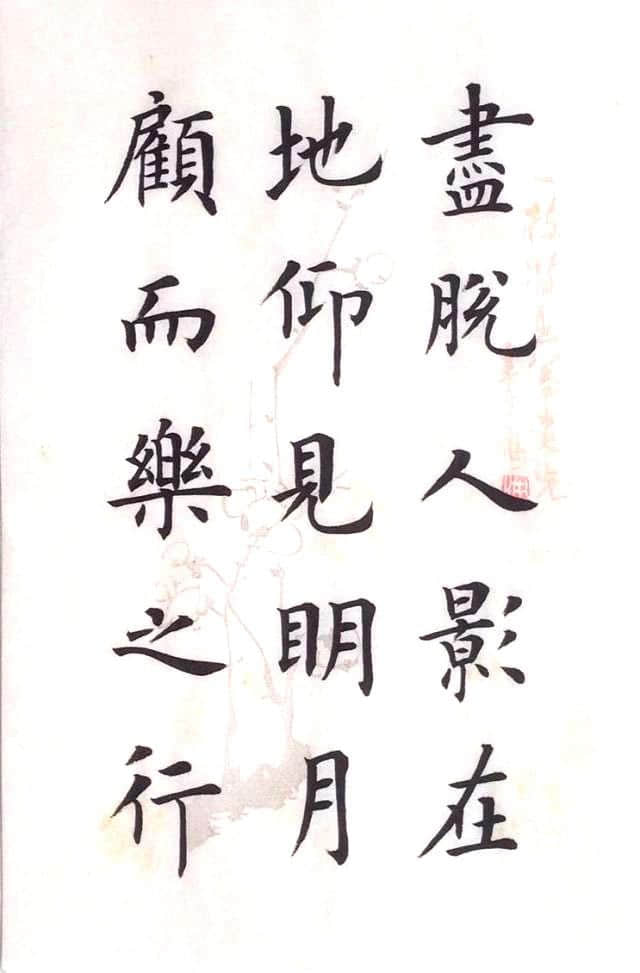 盡脫人影在
地仰見明月
顧而樂之行